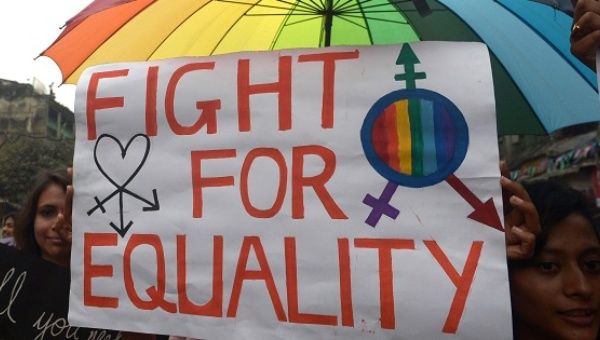 FIGHT
FOR
EQUALITY
ll you